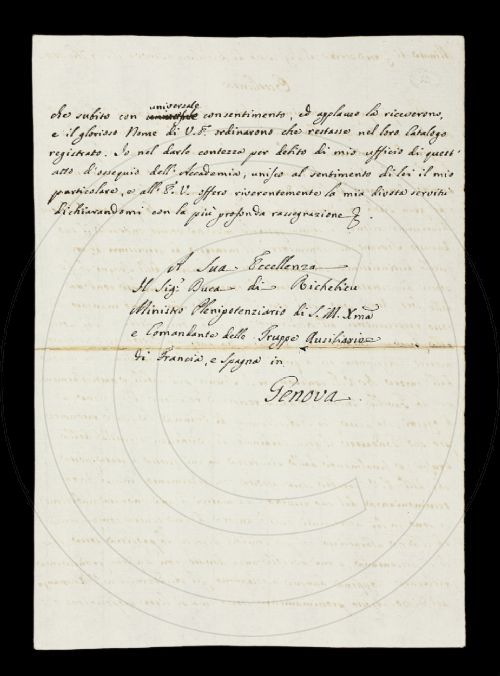 universale
che subito con consentimento, ed applauso la riceverono,
e il glorioso Nome di V. E. ordinarono che restasse nel loro Catalogo
registrato. Io nel darle contezza per debito di mio ufficio di quest'
atto di ossequio dell'Accademia, unisco al sentimento di lei il mio
particolare, e all'E. V. offero riverentemente la mia divota servitù
dichiarandomi con la più profonda rassegnazione
A Sua Eccellenza
Il Sig.r Duca di Richelieu
Ministro Plenipotenziario di S. M. Xma
e Comandante delle Truppe Ausiliarie
di Francia, e Spagna in
Genova.